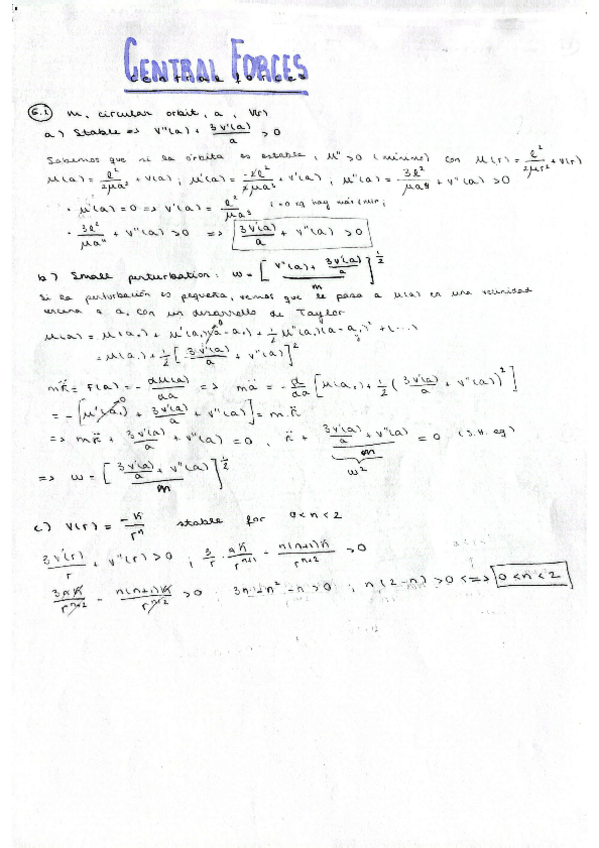 CENTRAL FORCES
central forces
6.1 m, circular orbit, a, V(r)
a) Stable => V''(a) + 3V'(a)/a > 0
Sabemos que si la órbita es estable, μ'' > 0 (mínimo) con μ(r) = ℓ²/2μr² + V(r)
μ(a) = ℓ²/2μa² + V(a) ; μ'(a) = -2ℓ²/2μa³ + V'(a) , μ''(a) = 3ℓ²/μa⁴ + V''(a) > 0
· μ'(a) = 0 => V'(a) = ℓ²/μa³ (=0 hay máx/mín ;
· 3ℓ²/μa⁴ + V''(a) > 0 => 3V'(a)/a + V''(a) > 0
b) Small perturbation: ω = [ (V''(a) + 3V'(a)/a) / m ]^1/2
Si la perturbación es pequeña, vemos que le pasa a μ(a) en una
a a, con un desarrollo de Taylor
μ(a) = μ(a₀) + μ'(a₀)(a - a₀)⁰ + 1/2 μ''(a₀)(a - a₀)² + (...)
= μ(a₀) + 1/2 [ 3V'(a)/a + V''(a) ]²
mr̈ = F(a) = - dμ(a)/da => mä = - d/da [ μ(a₀) + 1/2 ( 3V'(a)/a + V''(a) )² ]
= - [ μ'(a₀)⁰ + 3V'(a)/a + V''(a) ] = m r̈
=> mr̈ + 3V'(a)/a + V''(a) = 0 , r̈ + (3V'(a)/a + V''(a)) / m = 0 (S.H. eq)
ω²
=> ω = [ (3V'(a)/a + V''(a)) / m ]^1/2
c) V(r) = -K/rⁿ stable for 0 < n < 2
3V'(r)/r + V''(r) > 0 ; 3/r · nK/rⁿ⁺¹ - n(n+1)K/rⁿ⁺² > 0
3nK/rⁿ⁺² - n(n+1)K/rⁿ⁺² > 0 ; 3n - n² - n > 0 ; n(2-n) > 0 <=> 0 < n < 2